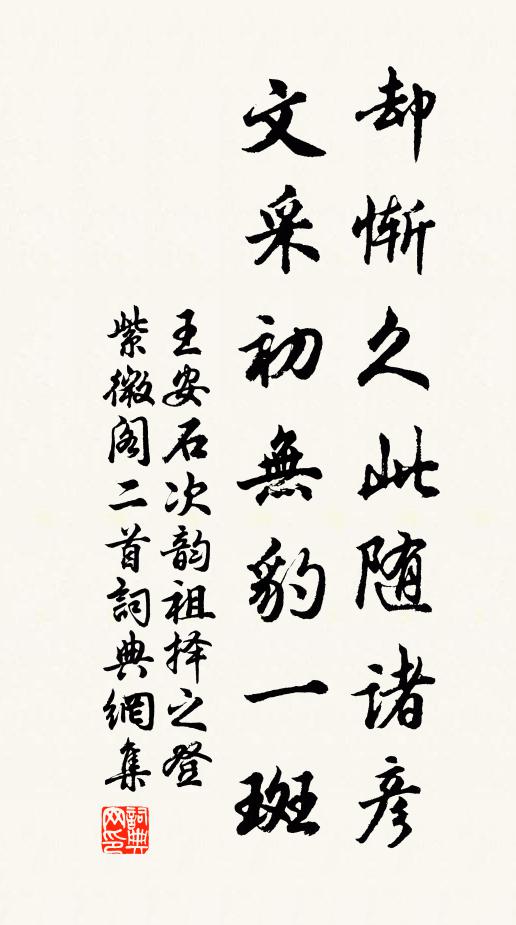 却慚久此随諸彦
文采初無豹一斑
王安石次韵祖择之登
紫微阁二首詞典網集
詞典
网印